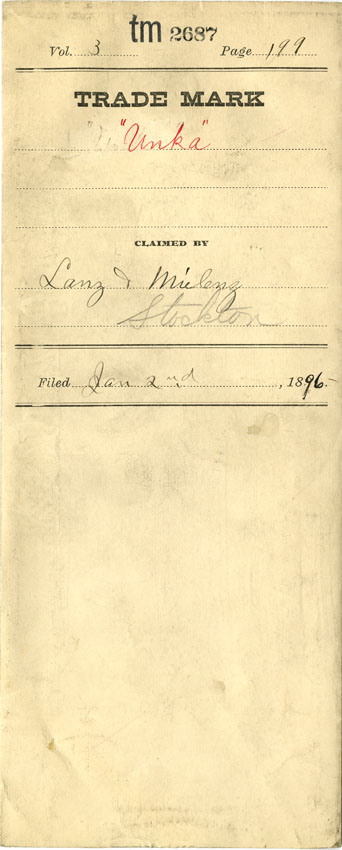 tm 2687
Vol. 3 Page 199
TRADE MARK
"Unka"
CLAIMED BY
Lanz & Mielenz
Stockton
Filed Jan 2nd, 1896